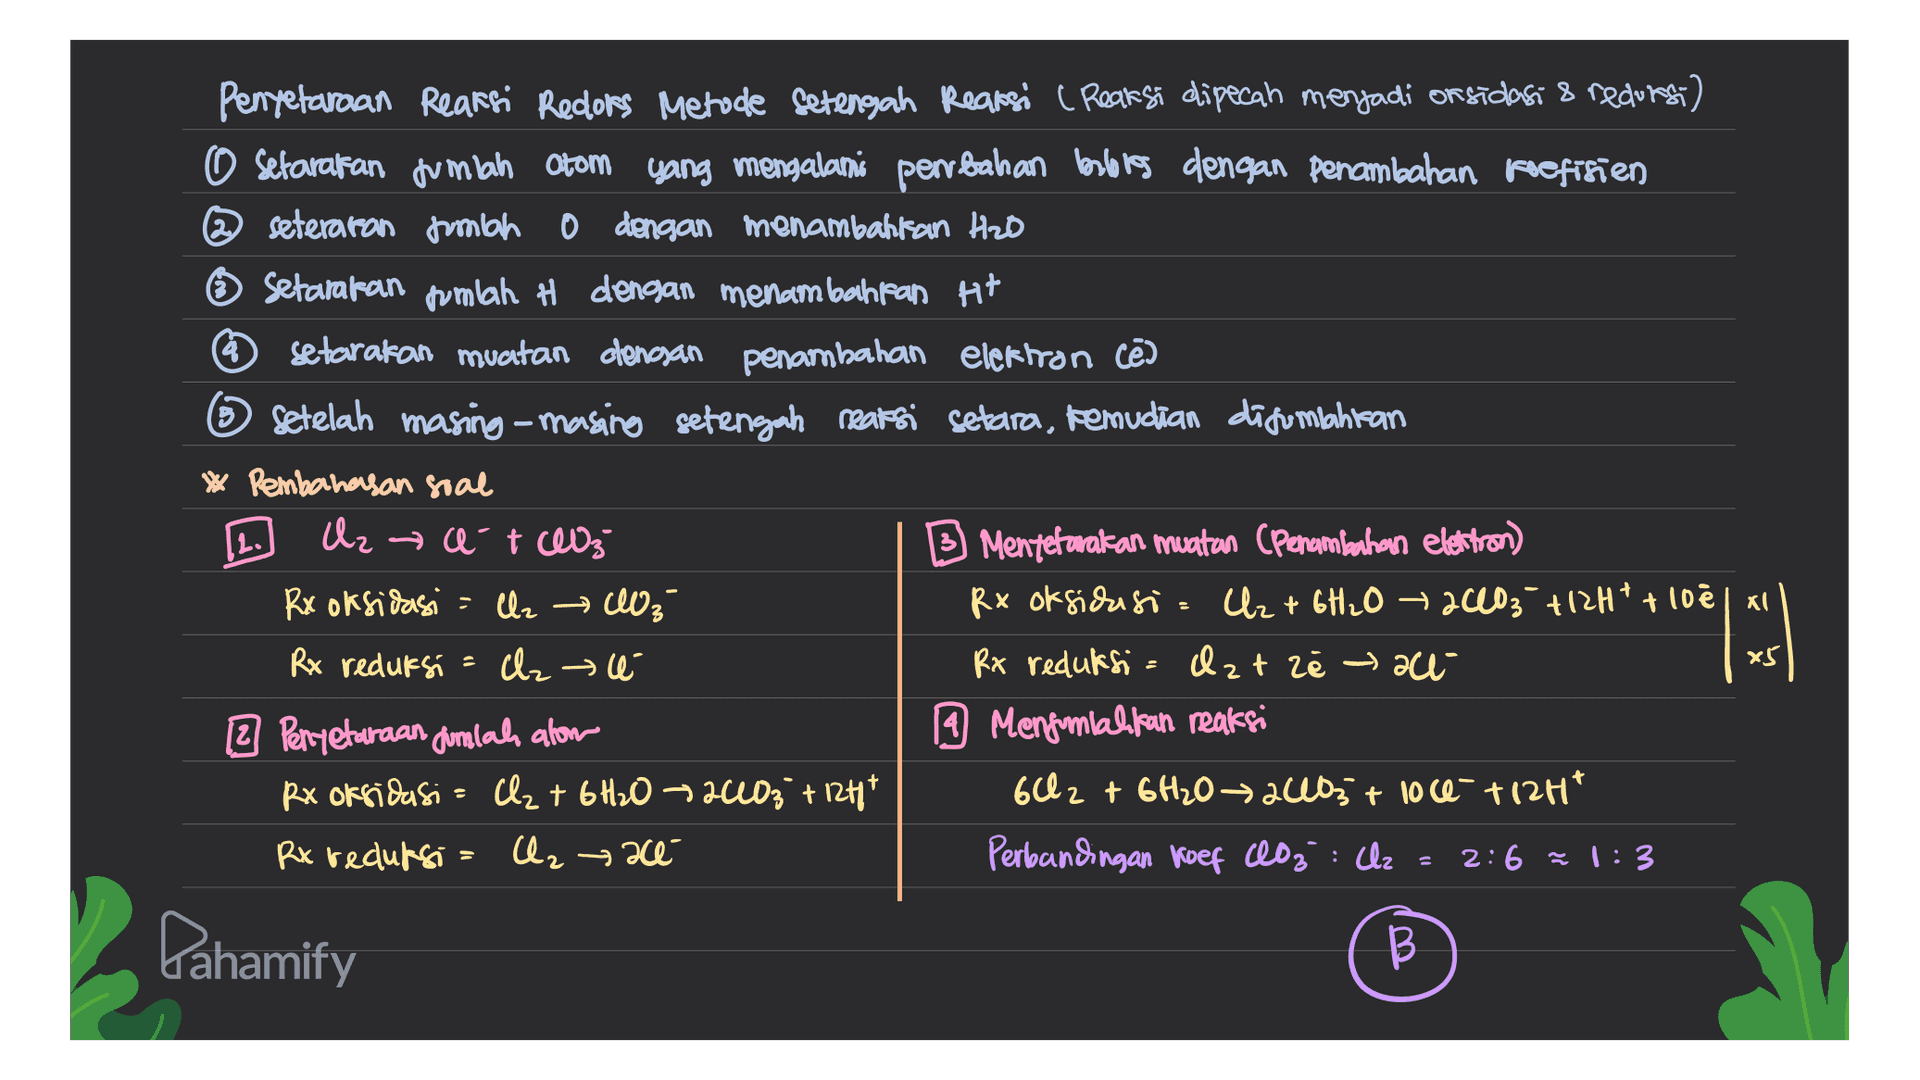 Penyetaraan Reaksi Redoks Metode Setengah Reaksi (Reaksi dipecah menjadi oksidasi & reduksi)
① Setarakan jumlah atom yang mengalami perubahan biloks dengan penambahan koefisien
② seterakan jumlah O dengan menambahkan H₂O
③ Setarakan jumlah H dengan menambahkan H⁺
④ setarakan muatan dengan penambahan elektron (ē)
⑤ Setelah masing-masing setengah reaksi setara, kemudian dijumlahkan
※ Pembahasan soal
1. Cl₂ → Cl⁻ + ClO₃⁻
Rx oksidasi = Cl₂ → ClO₃⁻
Rx reduksi = Cl₂ → Cl⁻
2 Penyetaraan jumlah atom
Rx oksidasi = Cl₂ + 6H₂O → 2ClO₃⁻ + 12H⁺
Rx reduksi = Cl₂ → 2Cl⁻
3 Menyetarakan muatan (Penambahan elektron)
Rx oksidasi = Cl₂ + 6H₂O → 2ClO₃⁻ + 12H⁺ + 10ē | x1 |
Rx reduksi = Cl₂ + 2ē → 2Cl⁻ | x5 |
4 Menjumlahkan reaksi
6Cl₂ + 6H₂O → 2ClO₃⁻ + 10Cl⁻ + 12H⁺
Perbandingan koef ClO₃⁻ : Cl₂ = 2:6 ≈ 1:3
B
Pahamify